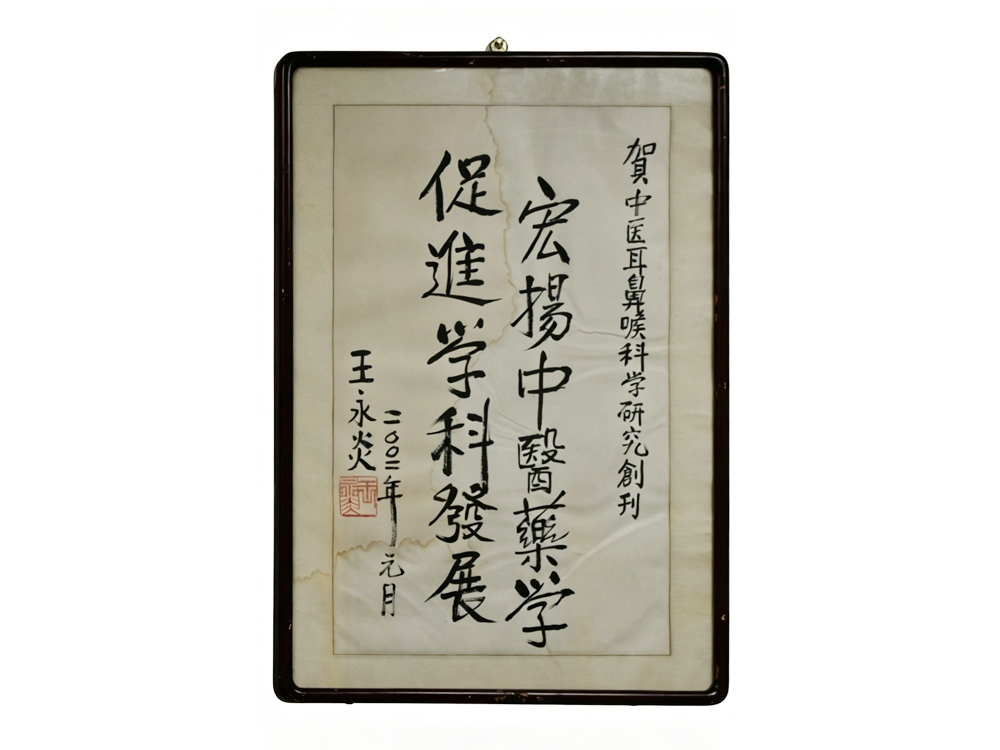 賀中医耳鼻喉科学研究創刊
宏揚中醫藥学
促進学科發展
二〇〇二年元月
王永炎
王永炎